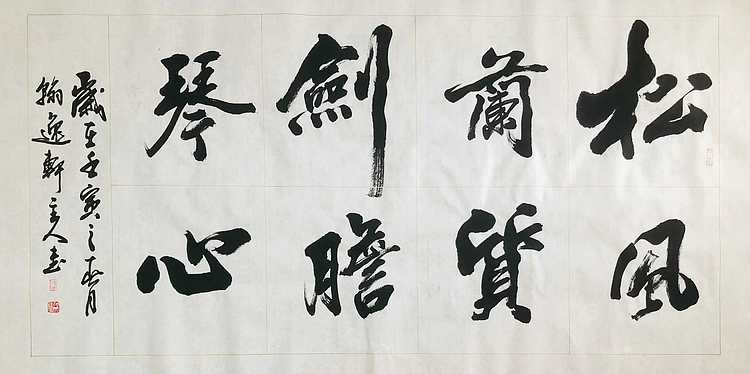 松風
蘭質
劍膽
琴心
歲在壬寅之春月
翰逸軒主人書